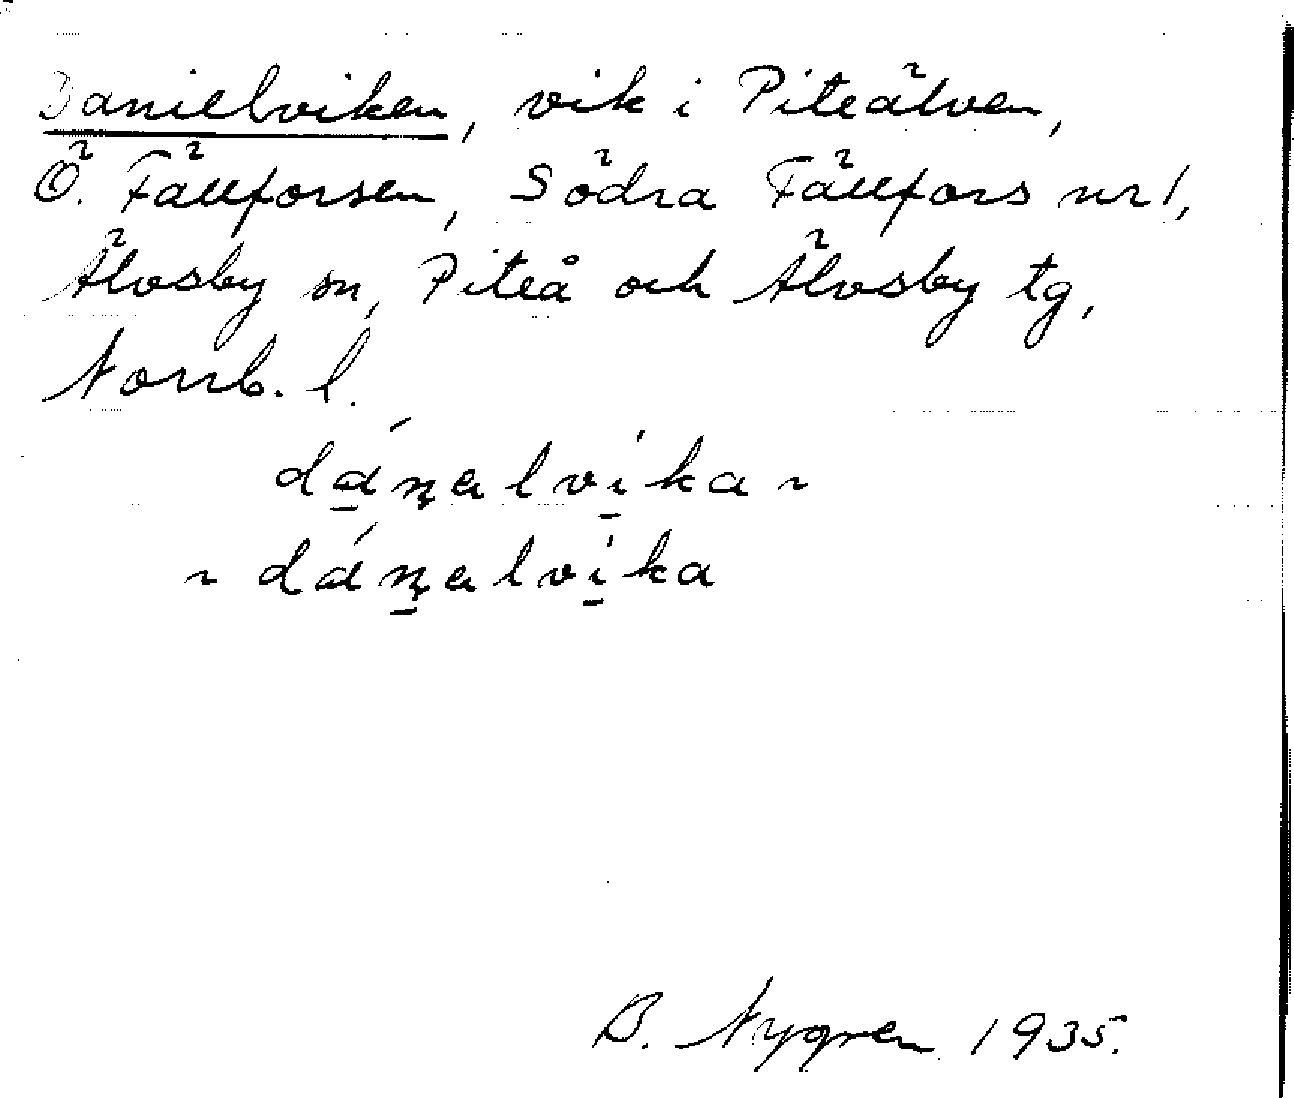 Danielviken, vik i Piteälven,
Ö. Fällforsen, Södra Fällfors nr 1,
Älvsby sn, Piteå och Älvsby tg,
Norrb. l.
dánalvika ~
~ dánalvika
B. Nygren 1935.